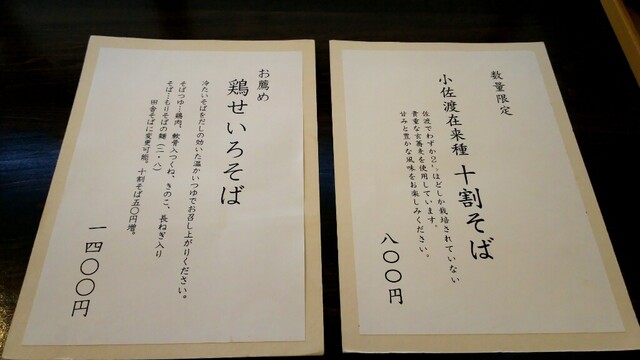 数量限定
小佐渡在来種 十割そば
佐渡でわずか2㌶ほどしか栽培されていない
貴重な玄蕎麦を使用しています。
甘みと豊かな風味をお楽しみください。
八〇〇円
お薦め
鶏せいろそば
冷たいそばをだしの効いた温かいつゆでお召し上がりください。
そばつゆ…鶏肉、軟骨入つくね、きのこ、長ねぎ入り
そば…もりそばの麺（二・八）
田舎そばに変更可能。十割そば五〇円増。
一四〇〇円